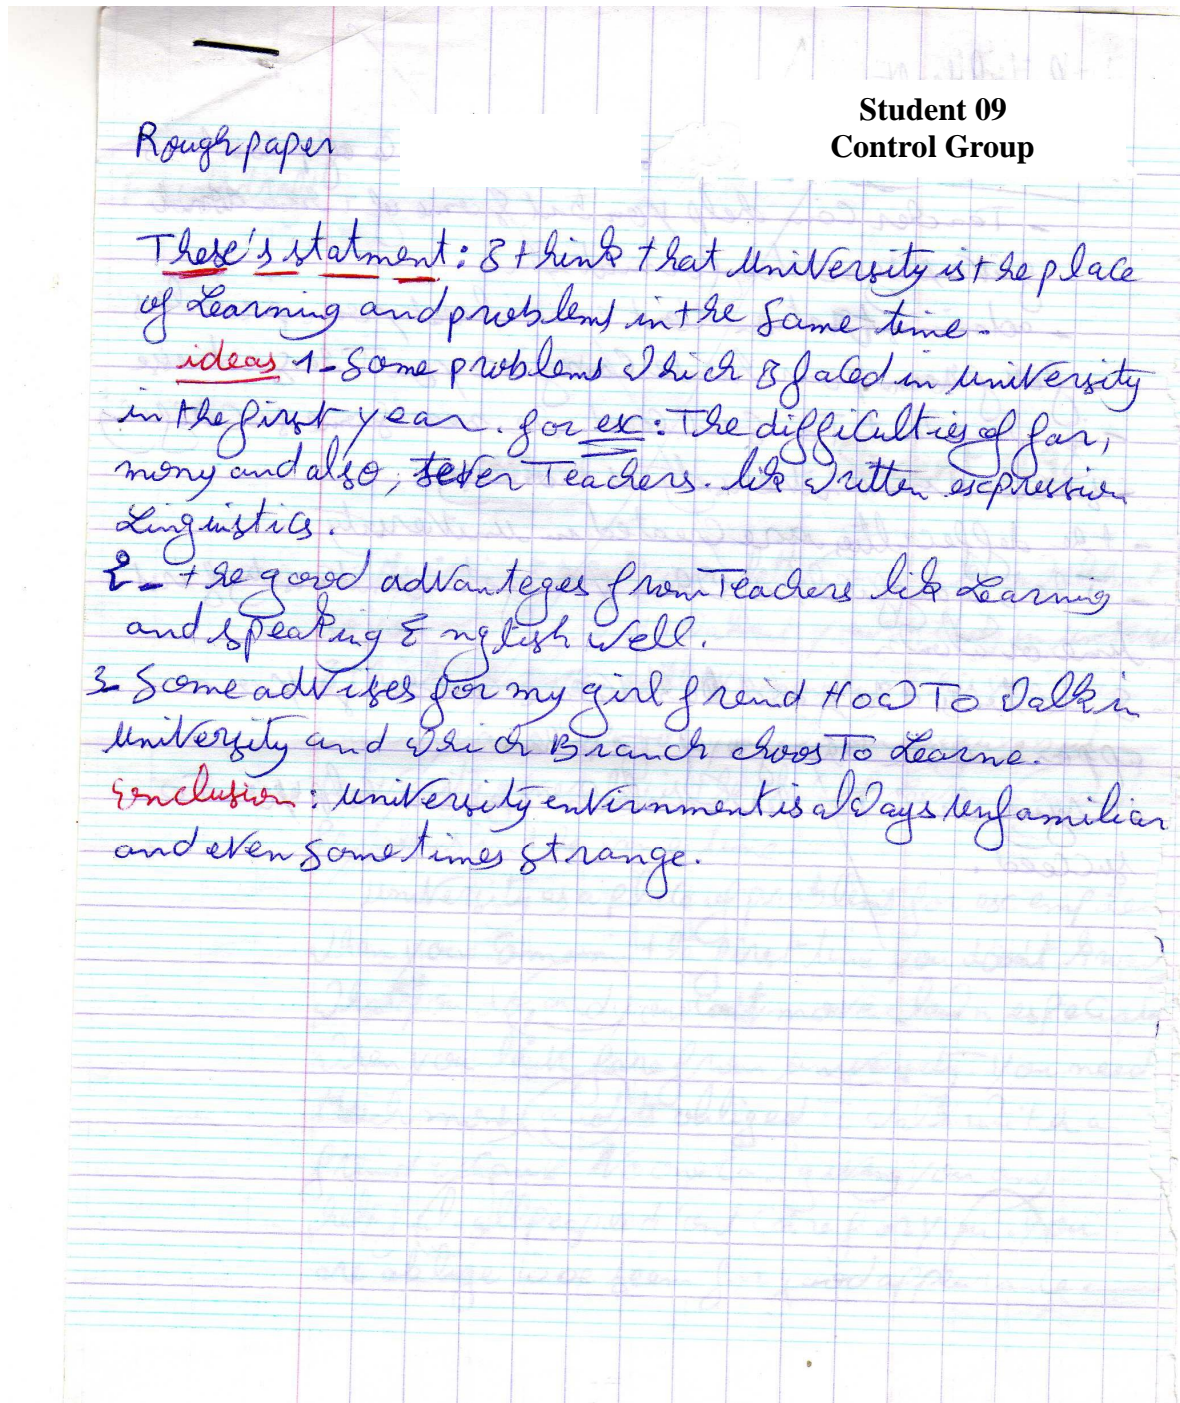 Student 09
Control Group
Rough paper
These's statment: I think that university is the place
of Learning and problems in the same time.
ideas 1- Some problems which I faced in university
in the first year. for ex: The difficulties of far,
mony and also, sever Teachers. like written expression
Linguistics.
2- the good advanteges from Teachers like Learning
and speaking English well.
3- Some advises for my girl freind How To Walk in
university and which Branch choos To Learne.
Conclusion: university envirnment is always unfamiliar
and even sometimes strange.